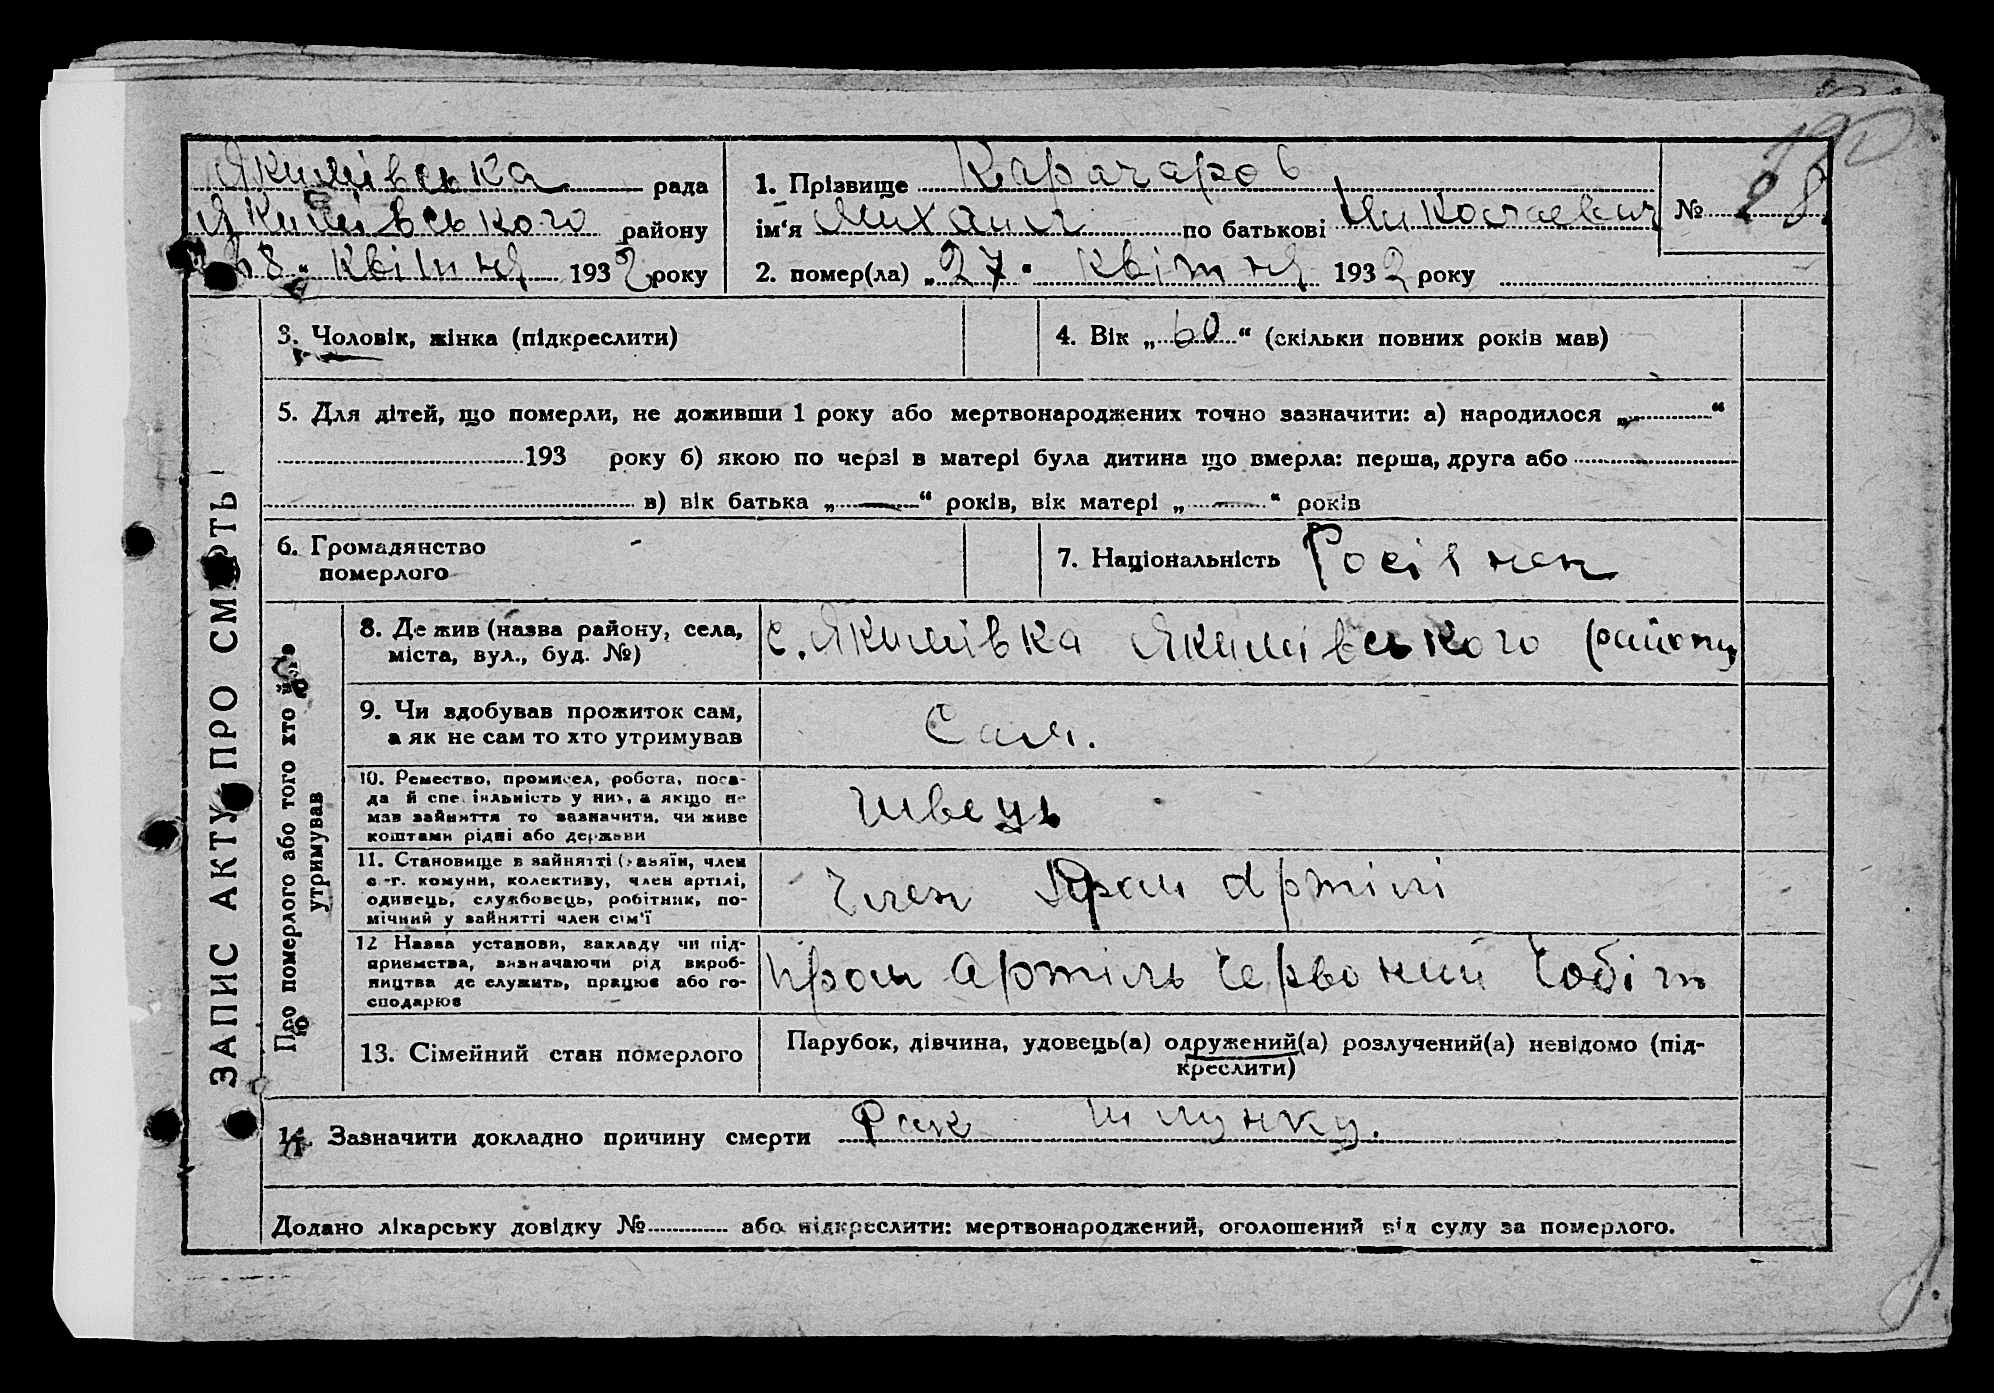 190
Якимівська рада
Якимівського району
28 " Квітня 1932 року
1. Прізвище Карачаров
ім'я Михаил по батькові Николаевич
№ 28
2. помер(ла) „27" квітня 1932 року
ЗАПИС АКТУ ПРО СМЕРТЬ
3. Чоловік, жінка (підкреслити)
4. Вік „60" (скільки повних років мав)
5. Для дітей, що померли, не доживши 1 року або мертвонароджених точно зазначити: а) народилося „ "
193 року б) якою по черзі в матері була дитина що вмерла: перша, друга або
в) вік батька „—" років, вік матері „—" років
6. Громадянство
померлого
7. Національність Росіянен
Про померлого або того хто його
утримував
8. Де жив (назва району, села,
міста, вул., буд. №)
с. Якимівка Якимівського району
9. Чи здобував прожиток сам,
а як не сам то хто утримував
Сам.
10. Ремество, промисел, робота, поса-
да й спеціяльність у них, а якщо не
мав зайняття то зазначити, чи живе
коштами рідні або держави
Швець
11. Становище в зайнятті (хазяїн, член
с.-г. комуни, колективу, член артілі,
одинець, службовець, робітник, по-
мічний у зайнятті член сім'ї
Член Пром Артілі
12 Назва установи, закладу чи під-
приємства, визначаючи рід вироб-
ництва де служить, працює або го-
сподарює
Пром Артіль Червоний Чобіт
13. Сімейний стан померлого
Парубок, дівчина, удовець(а) одружений(а) розлучений(а) невідомо (під-
креслити)
14. Зазначити докладно причину смерти Рак шлунку.
Додано лікарську довідку № або підкреслити: мертвонароджений, оголошений від суду за померлого.